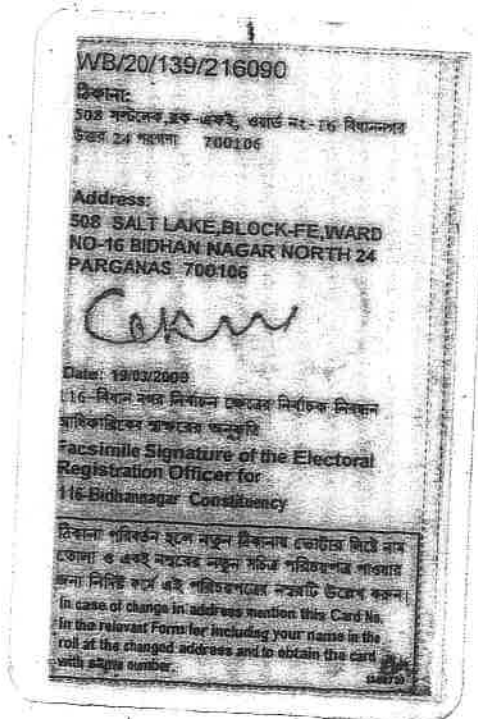 WB/20/139/216090
ঠিকানা:
508 সল্টলেক,ব্লক-এফই, ওয়ার্ড নং-16 বিধাননগর
উত্তর 24 পরগনা 700106
Address:
508 SALT LAKE,BLOCK-FE,WARD
NO-16 BIDHAN NAGAR NORTH 24
PARGANAS 700106
Date: 19/03/2009
116-বিধান নগর নির্বাচন ক্ষেত্রের নির্বাচক নিবন্ধন
আধিকারিকের স্বাক্ষরের অনুকৃতি
Facsimile Signature of the Electoral
Registration Officer for
116-Bidhannagar Constituency
ঠিকানা পরিবর্তন হলে নতুন ঠিকানায় ভোটার লিষ্টে নাম
তোলা ও একই নম্বরের নতুন সচিত্র পরিচয়পত্র পাওয়ার
জন্য নির্দিষ্ট ফর্মে এই পরিচয়পত্রের নম্বরটি উল্লেখ করুন।
In case of change in address mention this Card No.
in the relevant Form for including your name in the
roll at the changed address and to obtain the card
with same number.